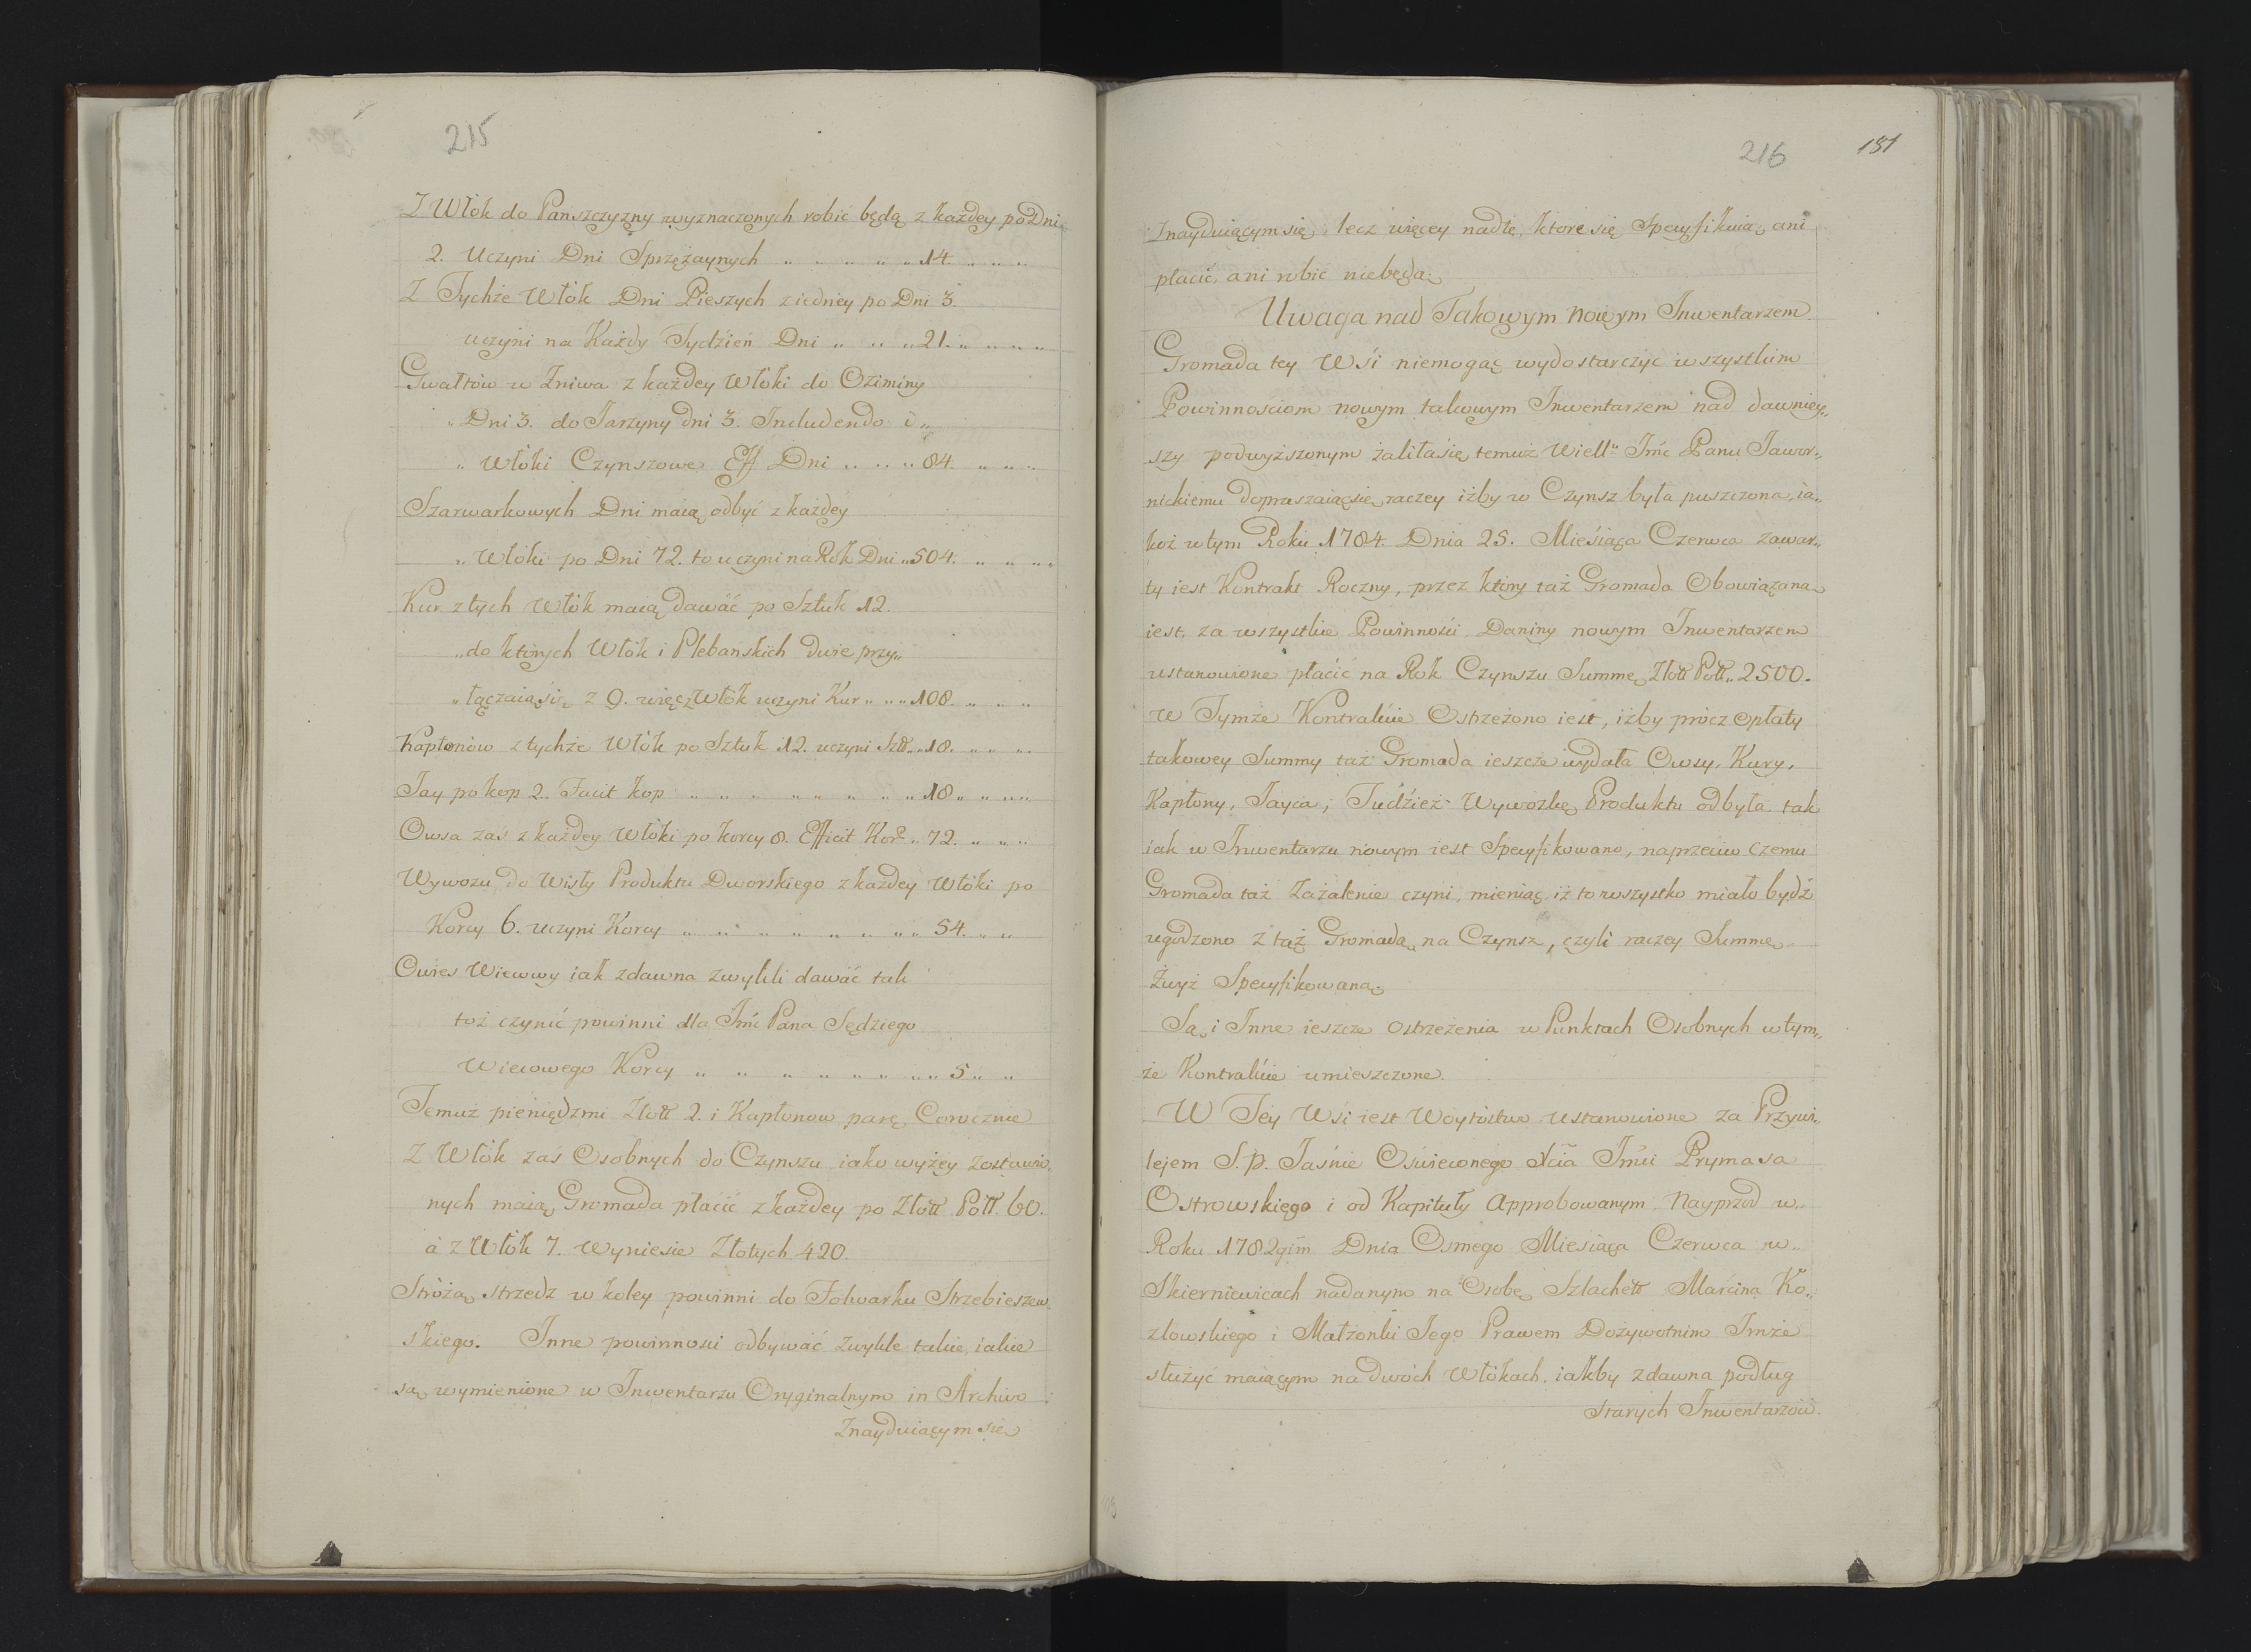 215
Z Włok do Panszczyzny wyznaczonych robić będą z każdey po Dni
2. Uczyni Dni Sprzężaynych „ „ „ „ „ 14. „ „ „
Z Tychże Włók Dni Pieszych z iedney po Dni 3.
uczyni na Każdy Tydzień Dni „ „ „ 21. „ „ „ „
Gwałtów w Żniwa z każdey Włóki do Oziminy
„ Dni 3. do Jarzyny dni 3. Includendo i „
„ Włóki Czynszowe Eff Dni „ „ „ 84. „ „ „
Szarwarkowych Dni maią odbyć z każdey
„ Włóki po Dni 72. to uczyni na Rok Dni „ 504. „ „ „ „
Kur z tych Włók maią dawać po Sztuk 12.
„ do których Włók i Plebanskich dwie przy„
„ łączaią się z 9. więc Włók uczyni Kur „ „ „ 108. „ „ „
Kapłonów z tychże Włók po Sztuk 12. uczyni Szt. „ 18. „ „ „
Jay po kop 2. Facit kop „ „ „ „ „ „ „ „ 18 „ „ „ „
Owsa zaś z każdey Włóki po korcy 8. Efficit Kor. „ 72. „ „ „
Wywozu do Wisły Produktu Dworskiego z każdey Włóki po
Korcy 6. uczyni Korcy „ „ „ „ „ „ „ „ 54. „ „
Owies Wiecowy iak zdawna zwykli dawać tak
toż czynić powinni dla Jmć Pana Sędziego
Wiecowego Korcy „ „ „ „ „ „ „ „ 5 „ „
Temuż pieniędzmi Złott 2. i Kapłonow parę Corocznie
Z Włók zaś Osobnych do Czynszu iako wyżey zostawio„
nych maią Gromada płacić z każdey po Złott Poll. 60.
á z Włók 7. wyniesie Złotych 420.
Stróżą strzedz w koley powinni do Folwarku Strzebieszew„
skiego. Inne powinnosci odbywać zwykłe takie, iakie
są wymienione w Inwentarzu Oryginalnym in Archivo
Znayduiącym się
216 181
Znayduiącym się, lecz więcey nad te, ktore się Specyfikuią, ani
płacić, ani robić niebędą.
Uwaga nad Takowym nowym Inwentarzem
Gromada tey Wśi niemogąc wydostarczyć wszystkim
Powinnościom nowym takowym Inwentarzem nad dawniey„
szy podwyższonym żaliła się temuż Wiell. Jmć Panu Jawor„
nickiemu dopraszaiąc się raczey iżby w Czynsz była puszczona, ia„
koż w tym Roku 1784. Dnia 25. Miesiąca Czerwca zawar„
ty iest Kontrakt Roczny, przez który taż Gromada Obowiązana
iest, za wszystkie Powinności, Daniny nowym Inwentarzem
ustanowione płacić na Rok Czynszu Summę Złott Poll. 2500.
w Tymże Kontrakcie Ostrzeżono iest, iżby prócz opłaty
takowey Summy taż Gromada ieszcze wydała Owsy, Kury,
Kapłony, Jayca, Tudzież Wywozkę Produktu odbyła, tak
iak w Inwentarzu nowym iest Specyfikowano, naprzeciw czemu
Gromada taż Zażalenie czyni, mieniąc, iż to wszystko miało bydź
ugodzono z tąż Gromadą na Czynsz, czyli raczey Summę
zwyż Specyfikowaną.
Są i Inne ieszcze ostrzeżenia w Punktach Osobnych w tym„
że Kontrakcie umieszczone.
W Tey Wśi iest Woytóstwo ustanowione za Przywi„
lejem S. p. Jaśnie Oświeconego Xcia Jmći Prymasa
Ostrowskiego i od Kapituły Approbowanym. Nayprzód w„
Roku 1782gim Dnia Osmego Miesiąca Czerwca w„
Skierniewicach nadanym na Osobę Szlachett Marcina Ko„
złowskiego i Małżonki Jego Prawem Dożywotnim Jmże
służyć maiącym na dwóch Włókach, iakby zdawna podług
starych Inwentarzow.